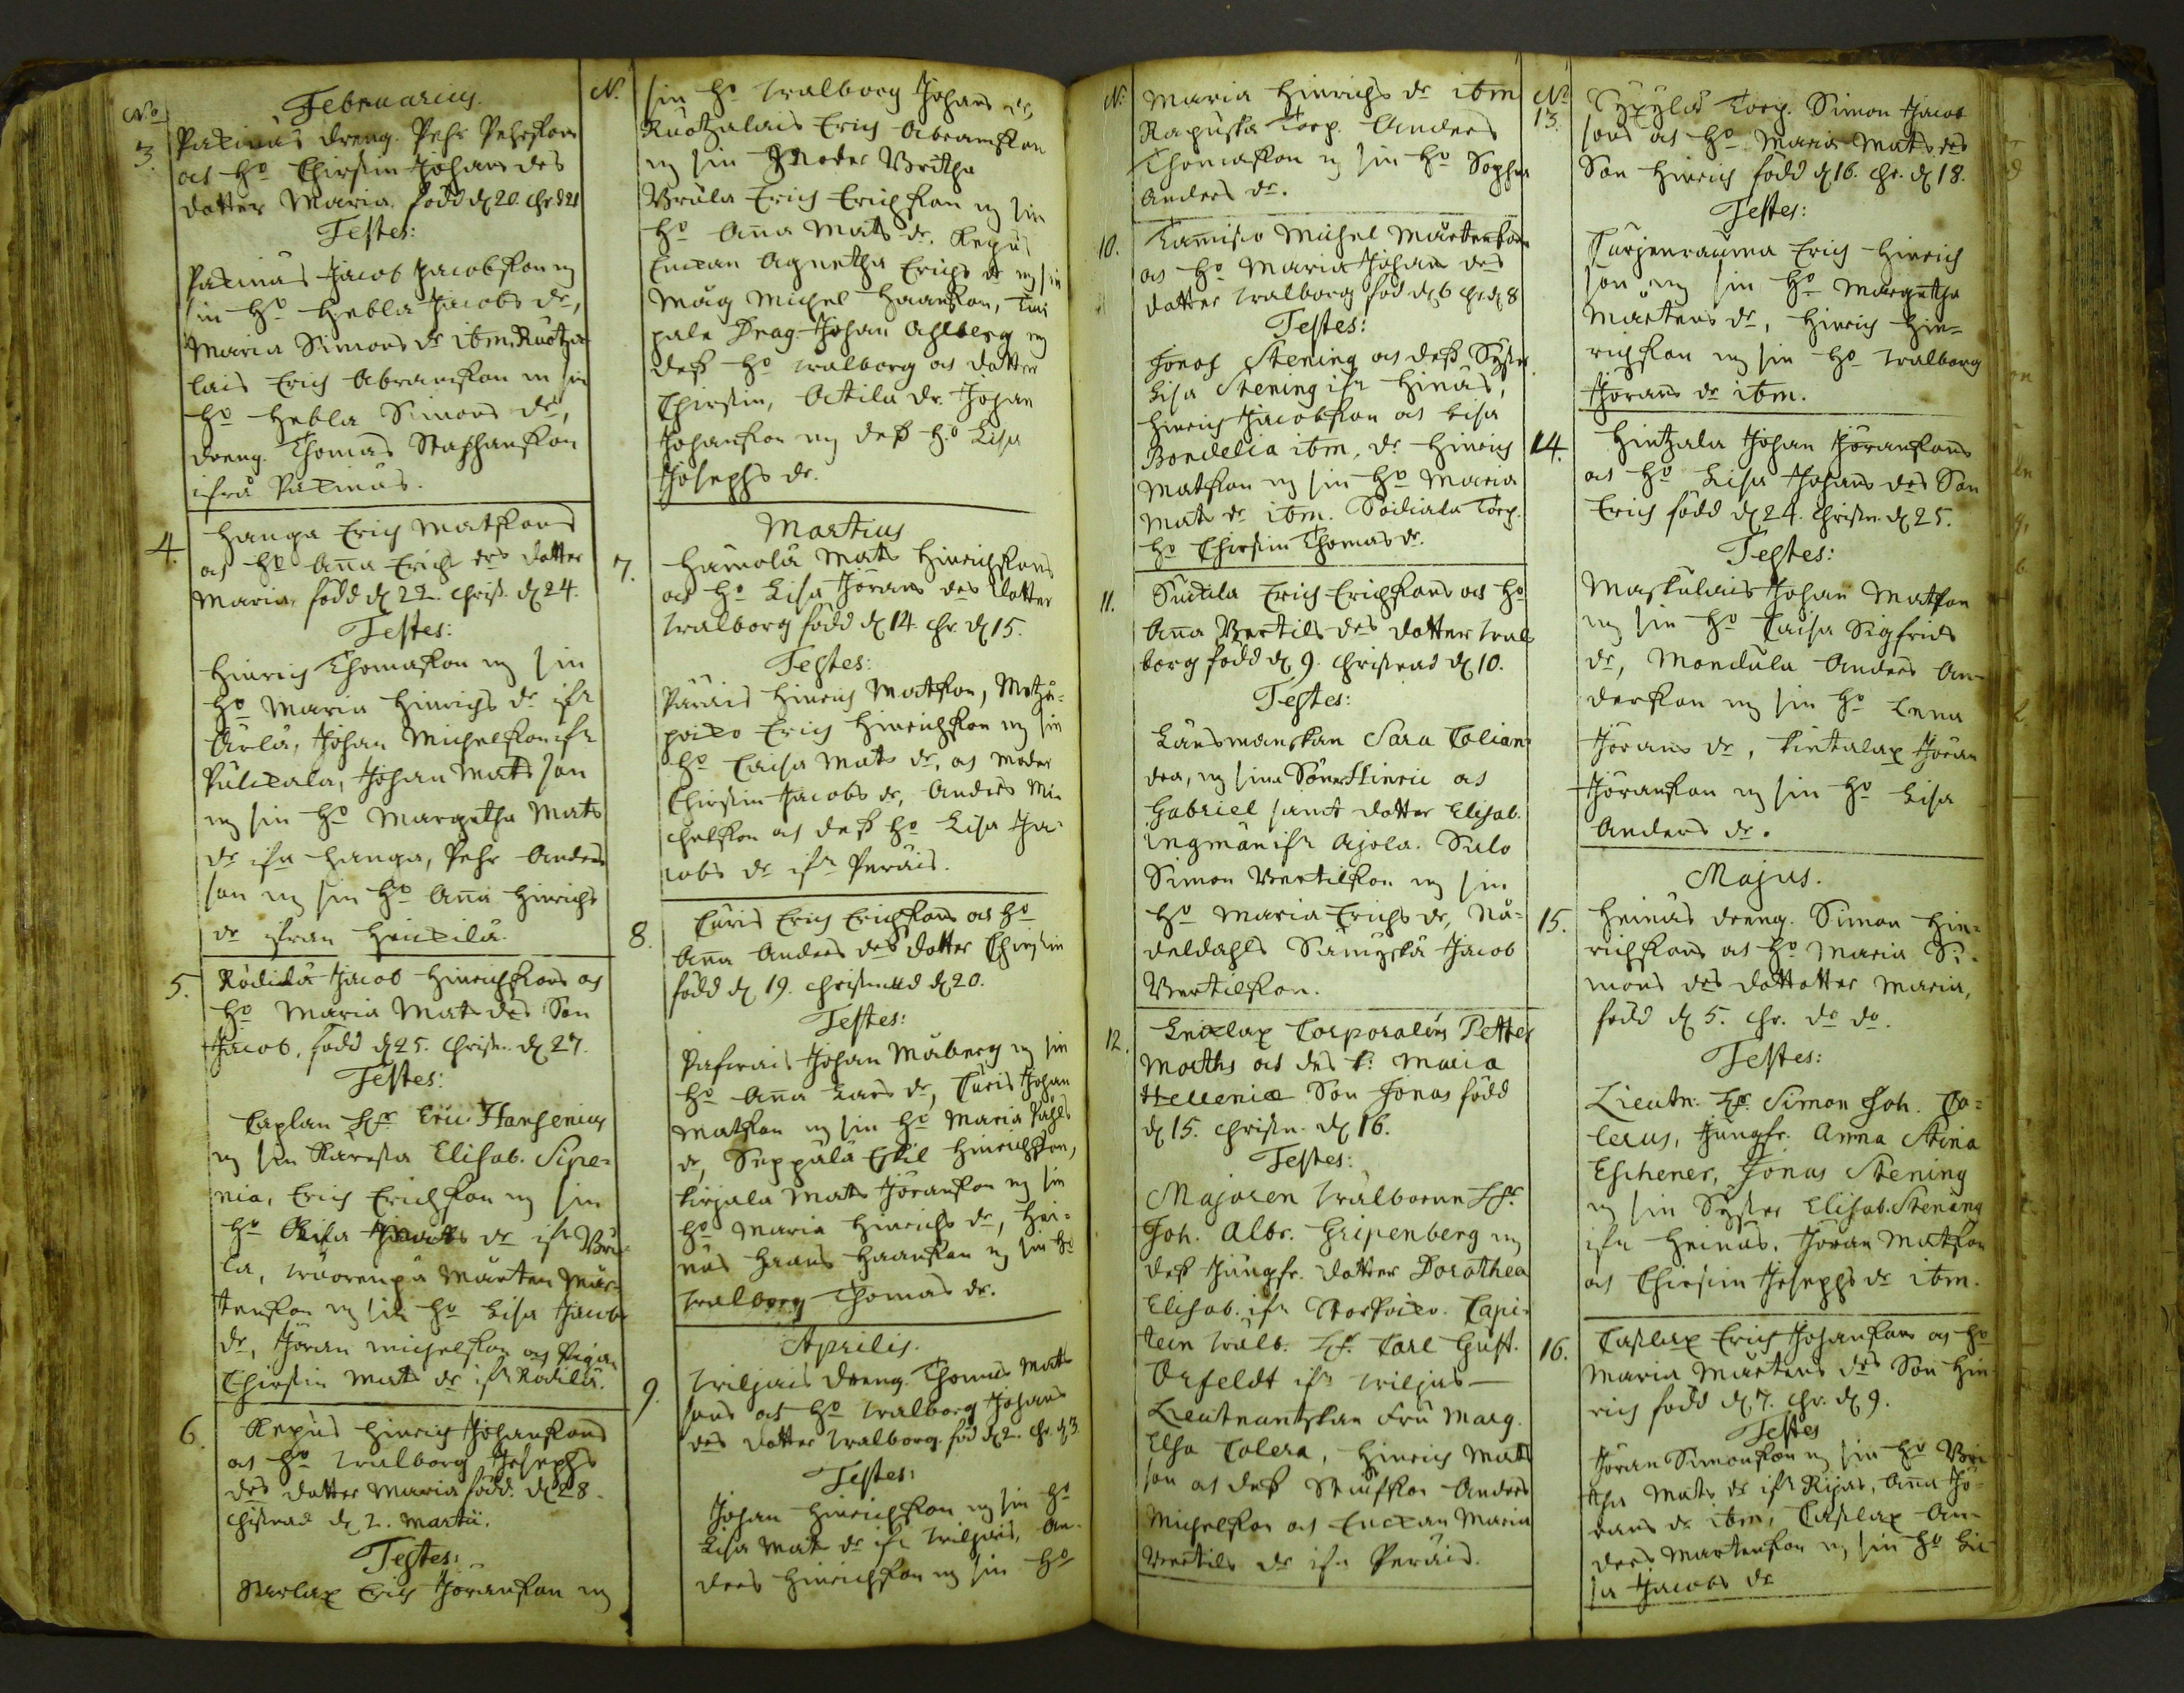 No
Februarius.
3.
Paximas dreng. Pehr Pehrssons
och Ho Chirstin Johans des
dotter Maria. född d 20. chr. d 21
Testes:
Paximas Jacob Jacobsson m
sin Ho Hebla Jacobs dr,
Maria Simons dr ibm, Ruotza
lais Erich Abramsson m sin
Ho Hebla Simons dr,
dreng. Thomas Staphansson
ifrå Paximas.
4.
Hanga Erich Matssons
och Ho Aña Erichs des dotter
Maria, född d 22. Christ. d 24.
Testes:
Hinrich Thomasson m sin
Ho Maria Hinrichs dr ifr
Ärlä, Johan Michelsson ifr
Johan Mats son
m sin Ho Margetha Mats
dr ifr Hanga, Pehr Anders
son m sin Ho Aña Hinrichs
dr ifrån
5.
Rådilä Jacob Hinrichssons och
Ho Maria Mats des Son
Jacob, född d 25. Christn. d 27.
Testes:
Caplan Hr Eric Hansenius
m sin Käresta Elisab. Sipe=
nia, Erich Erichsson m sin
Ho Lisa dr ifr Bru=
la, Mårten Mår=
tensson m sin Ho Lisa Jacobs
dr, Jöran Michelsson och Pigan
Chirstin Mats dr ifr Rådilä.
6.
Repus Hinrich Johanssons
och Ho Walborg Josephs
des dotter Maria född. d 28.
christnad d 2. Martii.
Testes:
Starlax Erich Jöransson m
N.
sin Ho Walborg Johans dr,
Ruotzalais Erich Abramsson
m sin Moder Britha
Brula Erich Erichsson m sin
Ho Aña Mats dr. Repus
Enckan Agnetha Erichs dr m sin
Måg Michel Haansson,
pala Drag. Johan Ahlberg m
dess Ho Walborg och dotter
Chirstin, Actila dr. Johan
Johansson m dess Ho Lisa
Josephs dr.
Martius
7.
Hämolä Mats Hinrichssons
och Ho Lisa Jörans des dotter
Walborg född d 14. chr. d 15.
Testes:
Päräis Hinrich Matsson,
Erich Hinrichsson m sin
Ho Caisa Mats dr, och moder
Chirstin Jacobs dr, Anders Mi=
chelsson och dess Ho Lisa Ja=
cobs dr ifr Peräis.
8.
Turis Erich Erichssons och Ho
Aña Anders des dotter Chirstin
född d 19. christnad d 20.
Testes:
Johan Måberg m sin
Ho Aña Lars dr, Turis Johan
Matsson m sin Ho Maria Påhls
dr, Seppälä Eskil Hinrichsson,
Kirjala Mats Jöransson m sin
Ho Maria Hinrichs dr, Hei=
näs Haans Haansson m sin Ho
Walborg Thomas dr.
Aprilis.
9.
Wiljais dreng. Thomas Mats
sons och Ho Walborg Johans
des dotter Walborg. föd d 2. chr. d 3.
Testes:
Johan Hinrichsson m sin Ho
Lisa Mats dr ifr Wiljais, An=
ders Hinrichsson m sin Ho
N:
Maria Hinrichs dr ibm
Rapuska Torp. Anders
Thomasson m sin Ho Sophia
Anders dr.
10.
Tamisto Michel Mårtenssons
och Ho Maria Johans des
dotter Walborg föd d 6 chr d 8
Testes:
Jonas Stening och dess Syster
Lisa Stening ifr Hinäs,
Hinrich Jacobsson och Lisa
Bondelia ibm, dr Hinrich
Matsson m sin Ho Maria
Mats dr ibm. Torp.
Ho Chirstin Thomas dr.
11.
Erich Erichssons och Ho
Aña Bertils des dotter Wal
borg född d 9. christnad d 10.
Testes:
Länsmanskan Sara Colian=
dra, m sina Söner Hinric och
Gabriel samt dotter Elisab.
Ingman ifr Ajola. Salo
Simon Bertilsson m sin
Ho Maria Erichs dr, Nå=
deldahls Jacob
Bertilsson.
12.
Lemlax Corporalens Petter
Moths och des k: Maria
Helleniæ Son Jonas född
d 15. christn. d 16.
Testes:
Majoren Wälborne Hr
Joh. Albr. Gripenberg m
dess Jungfr. dotter Dorothea
Elisab. ifr Capi=
tein Wälb. Hr. Carl Gust.
Orfeldt ifr Wiljas
Lieutnantskan Fru Marg.
Elsa Colera, Hinrich Mats
son och dess Stiufson Anders
Michelsson och Enckan Maria
Bertils dr ifr Peräis.
No
13.
Torp. Simon Jacob
sons och Ho Maria Mats des
Son Hinrich född d 16. chr. d 18.
Testes:
Erich Hinrich
son m sin Ho Margetha
Mårtens dr, Hinrich Hin=
richsson m sin Ho Walborg
Jörans dr ibm.
14.
Hintzala Johan Jöranssons
och Ho Lisa Johans des Son
Erich född d 24. Christn. d 25.
Testes:
Maskulais Johan Matsson
m sin Ho Caisa Sigfrids
dr, Mondula Anders An=
dersson m sin Ho Lena
Jörans dr, Jöran
Jöransson m sin Ho Lisa
Anders dr.
Majus.
15.
Heinäs dreng. Simon Hin=
richssons och Ho Maria Si=
mons des dottotter Maria,
född d 5. chr. do do.
Testes:
Lieutn. Hr Simon Joh. Co=
lerus, Jungfr. Anna Stina
Eschener, Jonas Stening
m sin Syster Elisab. Stening
ifr Heinäs. Jöran Matsson
och Chirstin Josephs dr ibm.
16.
Taslax Erich Johanssons och Ho
Maria Mårtens des Son Hin
rich född d 7. chr. d 9.
Testes
Jöran Simonsson m sin Ho Bri
tha Mats dr ifr Rijas, Aña Jö=
rans dr ibm, Taslax An=
ders Mårtensson m sin Ho Li=
sa Jacobs dr